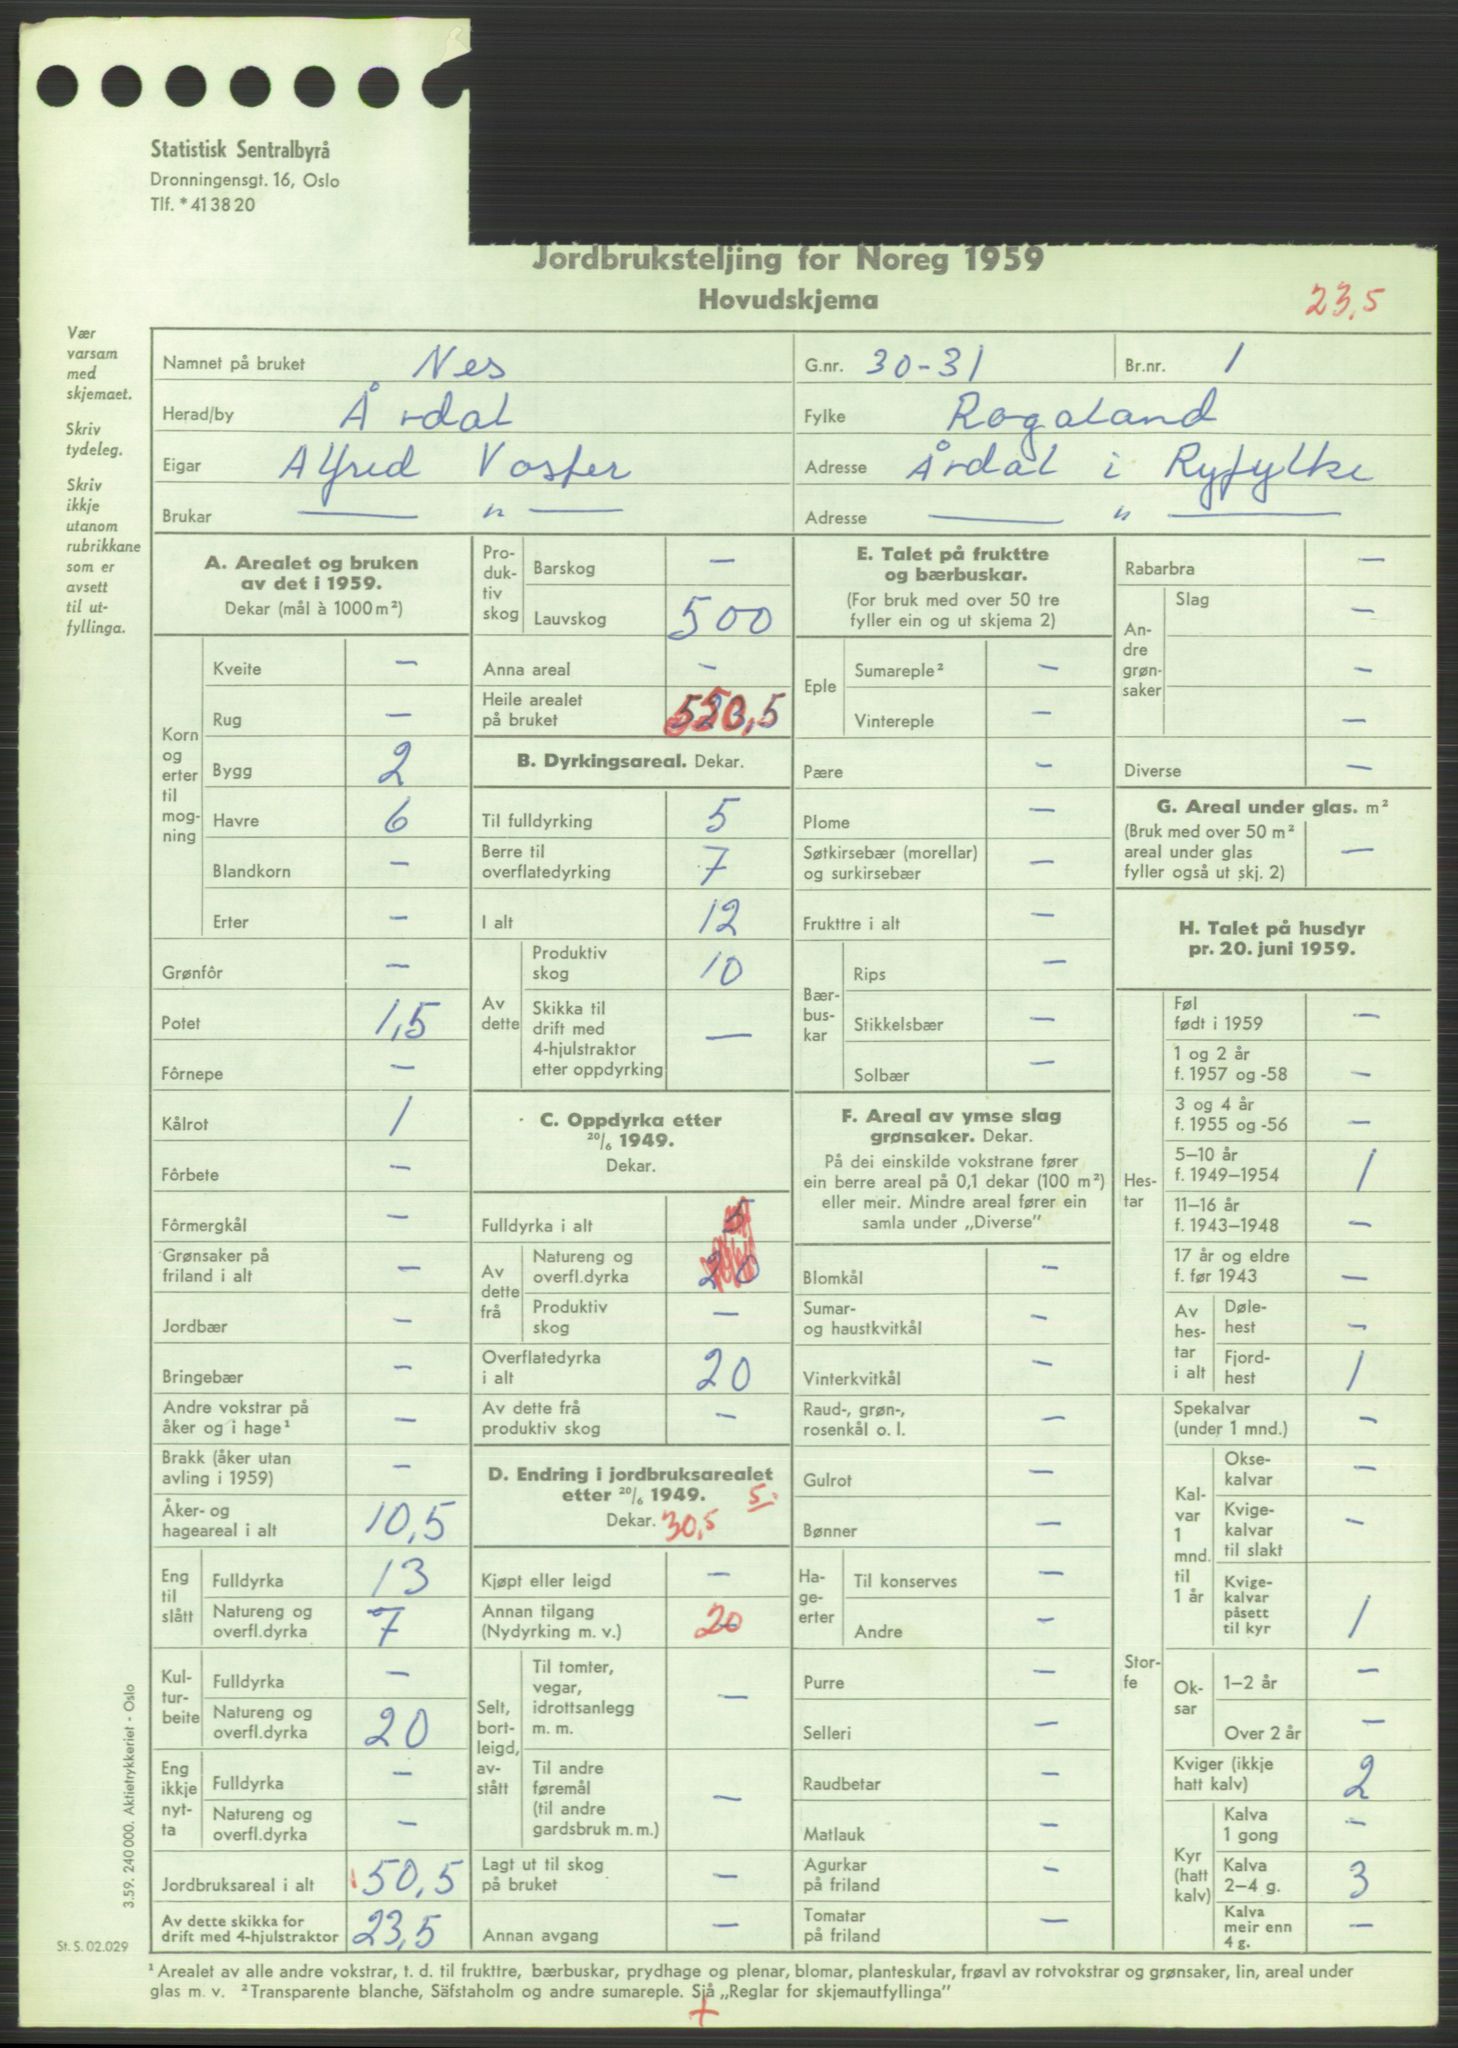 Statistisk Sentralbyrå
Dronningensgt. 16, Oslo
Tlf. *413820
Jordbruksteljing for Noreg 1959
Hovudskjema
23,5
Vær
varsam
med
skjemaet.
Skriv
tydeleg.
Skriv
ikkje
utanom
rubrikkane
som er
avsett
til ut-
fyllinga.
Namnet på bruket Nes G.nr. 30-31 Br.nr. 1
Herad/by Årdal Fylke Rogaland
Eigar Alfred Adresse Årdal i Ryfylke
Brukar — " — Adresse — " —
A. Arealet og bruken
av det i 1959.
Dekar (mål à 1000 m²)
Korn
og
erter
til
mog-
ning
Kveite –
Rug –
Bygg 2
Havre 6
Blandkorn –
Erter –
Grønfôr –
Potet 1,5
Fôrnepe –
Kålrot 1
Fôrbete –
Fôrmergkål –
Grønsaker på
friland i alt –
Jordbær –
Bringebær –
Andre vokstrar på
åker og i hage¹ –
Brakk (åker utan
avling i 1959) –
Åker- og
hageareal i alt 10,5
Eng
til
slått
Fulldyrka 13
Natureng og
overfl.dyrka 7
Kul-
tur-
beite
Fulldyrka –
Natureng og
overfl.dyrka 20
Eng
ikkje
nyt-
ta
Fulldyrka –
Natureng og
overfl.dyrka –
Jordbruksareal i alt 50,5
Av dette skikka for
drift med 4-hjulstraktor 23,5
Pro-
duk-
tiv
skog
Barskog –
Lauvskog 500
Anna areal –
Heile arealet
på bruket 550,5
B. Dyrkingsareal. Dekar.
Til fulldyrking 5
Berre til
overflatedyrking 7
I alt 12
Av
dette
Produktiv
skog 10
Skikka til
drift med
4-hjulstraktor
etter oppdyrking –
C. Oppdyrka etter
20/6 1949.
Dekar.
Fulldyrka i alt 5
Av
dette
frå
Natureng og
overfl.dyrka 20
Produktiv
skog –
Overflatedyrka
i alt 20
Av dette frå
produktiv skog –
D. Endring i jordbruksarealet
etter 20/6 1949. 5.
Dekar. 30,5
Kjøpt eller leigd –
Annan tilgang
(Nydyrking m. v.) 20
Selt,
bort-
leigd,
av-
stått
Til tomter,
vegar,
idrottsanlegg
m. m. –
Til andre
føremål
(til andre
gardsbruk m. m.) –
Lagt ut til skog
på bruket –
Annan avgang –
E. Talet på frukttre
og bærbuskar.
(For bruk med over 50 tre
fyller ein og ut skjema 2)
Eple
Sumareple² –
Vintereple –
Pære –
Plome –
Søtkirsebær (morellar)
og surkirsebær –
Frukttre i alt –
Bær-
bus-
kar
Rips –
Stikkelsbær –
Solbær –
F. Areal av ymse slag
grønsaker. Dekar.
På dei einskilde vokstrane fører
ein berre areal på 0,1 dekar (100 m²)
eller meir. Mindre areal fører ein
samla under „Diverse”
Blomkål –
Sumar-
og haustkvitkål –
Vinterkvitkål –
Raud-, grøn-,
rosenkål o. l. –
Gulrot –
Bønner –
Ha-
ge-
erter
Til konserves –
Andre –
Purre –
Selleri –
Raudbetar –
Matlauk –
Agurkar
på friland –
Tomatar
på friland –
Rabarbra –
An-
dre
grøn-
saker
Slag –
–
–
Diverse –
G. Areal under glas. m²
(Bruk med over 50 m²
areal under glas
fyller også ut skj. 2) –
H. Talet på husdyr
pr. 20. juni 1959.
Hes-
tar
Føl
født i 1959 –
1 og 2 år
f. 1957 og -58 –
3 og 4 år
f. 1955 og -56 –
5–10 år
f. 1949–1954 1
11–16 år
f. 1943–1948 –
17 år og eldre
f. før 1943 –
Av
hes-
tar
i alt
Døle-
hest –
Fjord-
hest 1
Stor-
fe
Spekalvar
(under 1 mnd.) –
Kal-
var
1
mnd.
til
1 år
Okse-
kalvar –
Kvige-
kalvar
til slakt –
Kvige-
kalvar
påsett
til kyr 1
Ok-
sar
1–2 år –
Over 2 år –
Kviger (ikkje
hatt kalv) 2
Kyr
(hatt
kalv)
Kalva
1 gong –
Kalva
2–4 g. 3
Kalva
meir enn
4 g. –
3.59. 240 000. Aktietrykkeriet - Oslo
St. S. 02.029
¹ Arealet av alle andre vokstrar, t. d. til frukttre, bærbuskar, prydhage og plenar, blomar, planteskular, frøavl av rotvokstrar og grønsaker, lin, areal under
glas m. v. ² Transparente blanche, Säfstaholm og andre sumareple. Sjå „Reglar for skjemautfyllinga”
+